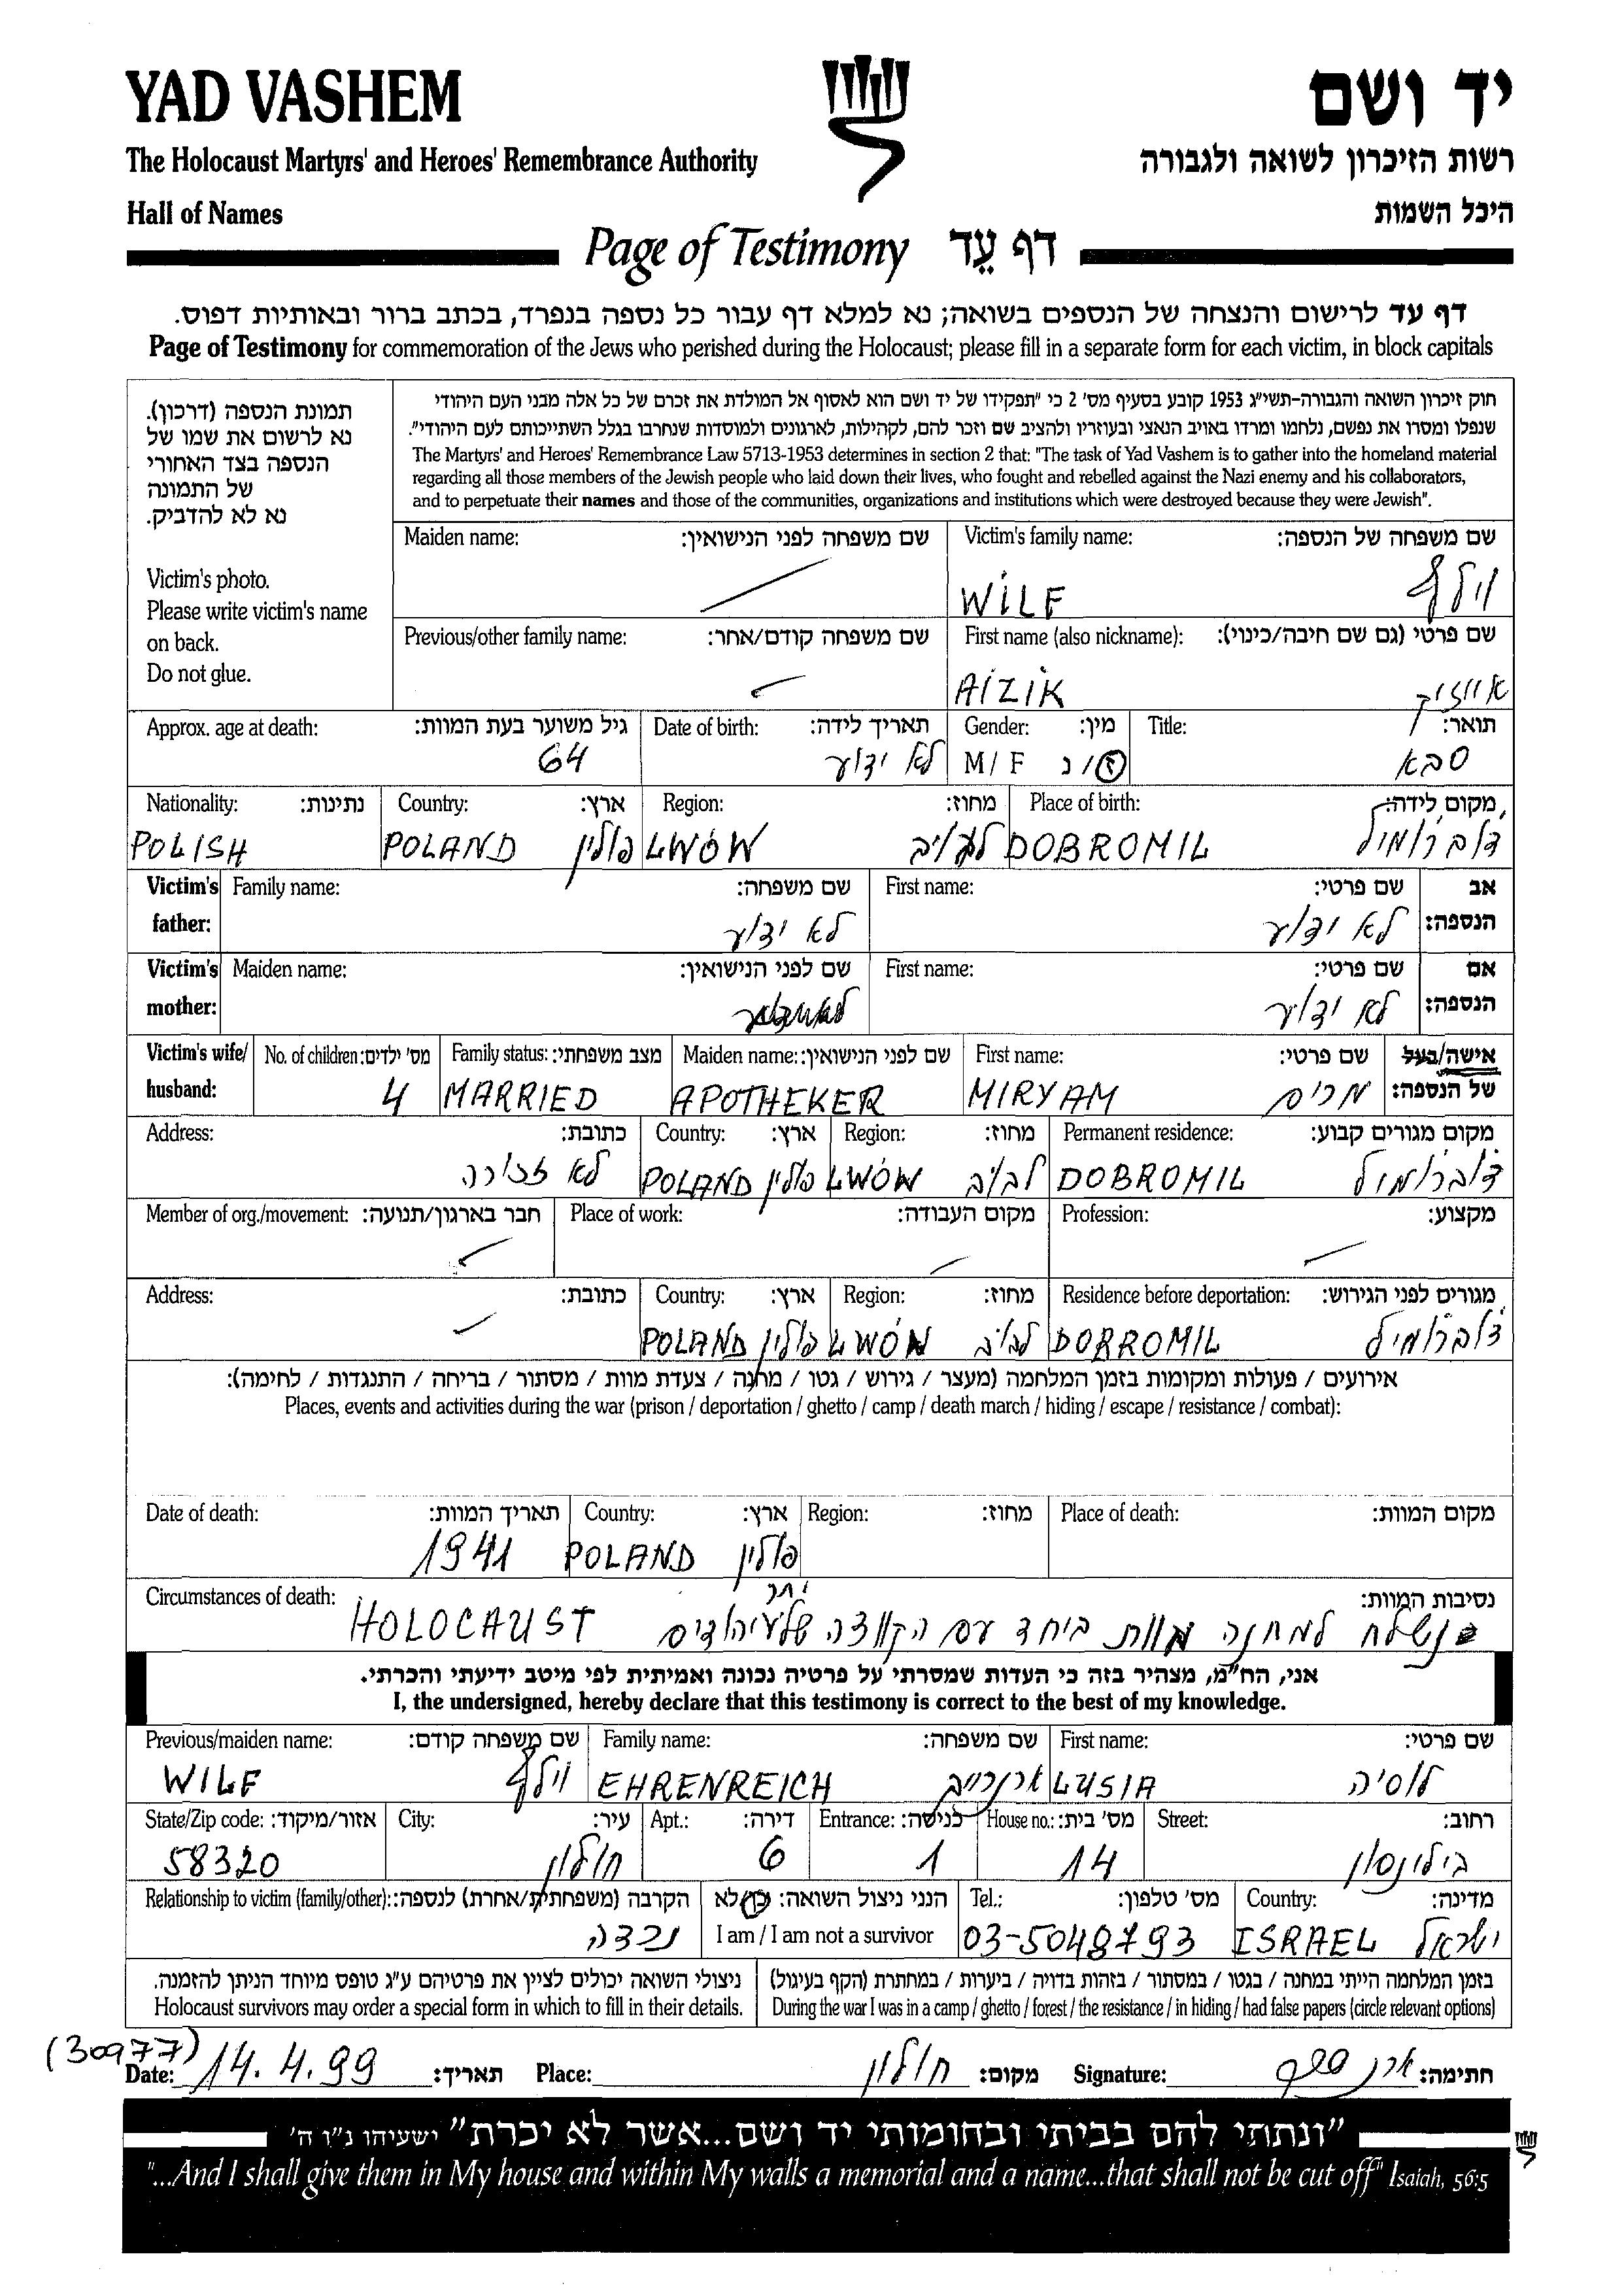 YAD VASHEM
יד ושם
The Holocaust Martyrs' and Heroes' Remembrance Authority
רשות הזיכרון לשואה ולגבורה
Hall of Names
היכל השמות
Page of Testimony דף עֵד
דף עד לרישום והנצחה של הנספים בשואה; נא למלא דף עבור כל נספה בנפרד, בכתב ברור ובאותיות דפוס.
Page of Testimony for commemoration of the Jews who perished during the Holocaust; please fill in a separate form for each victim, in block capitals
תמונת הנספה (דרכון).
נא לרשום את שמו של
הנספה בצד האחורי
של התמונה
נא לא להדביק.
Victim's photo.
Please write victim's name
on back.
Do not glue.
חוק זיכרון השואה והגבורה-תשי"ג 1953 קובע בסעיף מס' 2 כי "תפקידו של יד ושם הוא לאסוף אל המולדת את זכרם של כל אלה מבני העם היהודי
שנפלו ומסרו את נפשם, נלחמו ומרדו באויב הנאצי ובעוזריו ולהציב שם וזכר להם, לקהילות, לארגונים ולמוסדות שנחרבו בגלל השתייכותם לעם היהודי".
The Martyrs' and Heroes' Remembrance Law 5713-1953 determines in section 2 that: "The task of Yad Vashem is to gather into the homeland material
regarding all those members of the Jewish people who laid down their lives, who fought and rebelled against the Nazi enemy and his collaborators,
and to perpetuate their names and those of the communities, organizations and institutions which were destroyed because they were Jewish".
Maiden name: שם משפחה לפני הנישואין: Victim's family name: שם משפחה של הנספה:
WILF וילף
Previous/other family name: שם משפחה קודם/אחר: First name (also nickname): שם פרטי (גם שם חיבה/כינוי):
AIZIK אייזיק
Approx. age at death: גיל משוער בעת המוות: Date of birth: תאריך לידה: Gender: מין: Title: תואר:
64 לא ידוע M / F ז / נ סבא
Nationality: נתינות: Country: ארץ: Region: מחוז: Place of birth: מקום לידה:
POLISH POLAND פולין LWÓW לבוב DOBROMIL דוברומיל
Victim's Family name: שם משפחה: First name: שם פרטי: אב
father: לא ידוע לא ידוע הנספה:
Victim's Maiden name: שם לפני הנישואין: First name: שם פרטי: אם
mother: לא ידוע הנספה:
Victim's wife/ No. of children: מס' ילדים: Family status: מצב משפחתי: Maiden name: שם לפני הנישואין: First name: שם פרטי: אישה/בעל
husband: 4 MARRIED APOTHEKER MIRYAM מרים של הנספה:
Address: כתובת: Country: ארץ: Region: מחוז: Permanent residence: מקום מגורים קבוע:
לא זכורה POLAND פולין LWÓW לבוב DOBROMIL דוברומיל
Member of org./movement: חבר בארגון/תנועה: Place of work: מקום העבודה: Profession: מקצוע:
Address: כתובת: Country: ארץ: Region: מחוז: Residence before deportation: מגורים לפני הגירוש:
POLAND פולין LWÓW לבוב DOBROMIL דוברומיל
אירועים / פעולות ומקומות בזמן המלחמה (מעצר / גירוש / גטו / מחנה / צעדת מוות / מסתור / בריחה / התנגדות / לחימה):
Places, events and activities during the war (prison / deportation / ghetto / camp / death march / hiding / escape / resistance / combat):
Date of death: תאריך המוות: Country: ארץ: Region: מחוז: Place of death: מקום המוות:
1941 POLAND פולין
Circumstances of death: נסיבות המוות:
HOLOCAUST נשלח למחנה מוות ביחד עם הקבוצה של יתר יהודים
אני, הח"מ, מצהיר בזה כי העדות שמסרתי על פרטיה נכונה ואמיתית לפי מיטב ידיעתי והכרתי.
I, the undersigned, hereby declare that this testimony is correct to the best of my knowledge.
Previous/maiden name: שם משפחה קודם: Family name: שם משפחה: First name: שם פרטי:
WILF וילף EHRENREICH ארנרייב LUSIA לוסיה
State/Zip code: אזור/מיקוד: City: עיר: Apt.: דירה: Entrance: כניסה: House no.: מס' בית: Street: רחוב:
58320 חולון 6 1 14 בילינסון
Relationship to victim (family/other): הקרבה (משפחתית/אחרת) לנספה: הנני ניצול השואה: כן/לא Tel.: מס' טלפון: Country: מדינה:
נכדה I am / I am not a survivor 03-5048793 ISRAEL ישראל
ניצולי השואה יכולים לציין את פרטיהם ע"ג טופס מיוחד הניתן להזמנה. בזמן המלחמה הייתי במחנה / בגטו / במסתור / בזהות בדויה / ביערות / במחתרת (הקף בעיגול)
Holocaust survivors may order a special form in which to fill in their details. During the war I was in a camp / ghetto / forest / the resistance / in hiding / had false papers (circle relevant options)
(30977)
Date: 14.4.99 תאריך: Place: חולון מקום: Signature: חתימה:
"ונתתי להם בביתי ובחומותי יד ושם...אשר לא יכרת" ישעיהו נ"ו ה'
"...And I shall give them in My house and within My walls a memorial and a name...that shall not be cut off" Isaiah, 56:5